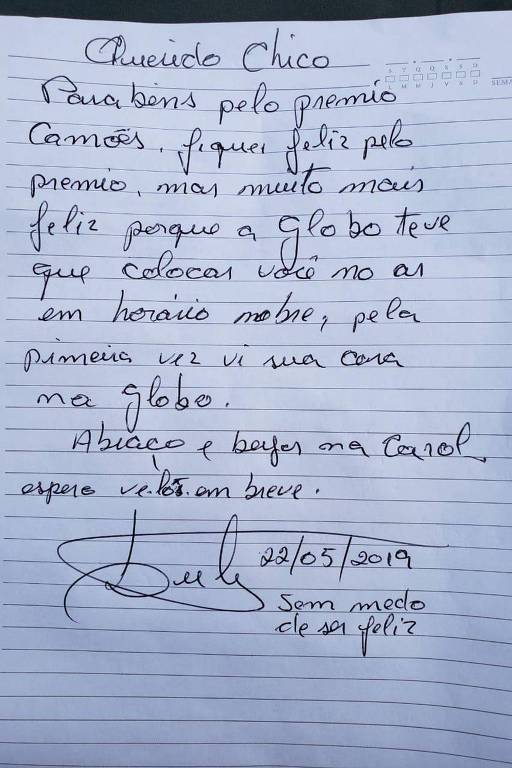 Querido Chico
Parabéns pelo premio
Camões, fiquei feliz pelo
premio, mas muito mais
feliz porque a globo teve
que colocar você no ar
em horário nobre, pela
primeira vez vi sua cara
na globo.
Abraço e beijos na Carol,
espero ve-los em breve.
Lula 22/05/2019
Sem medo
de ser feliz